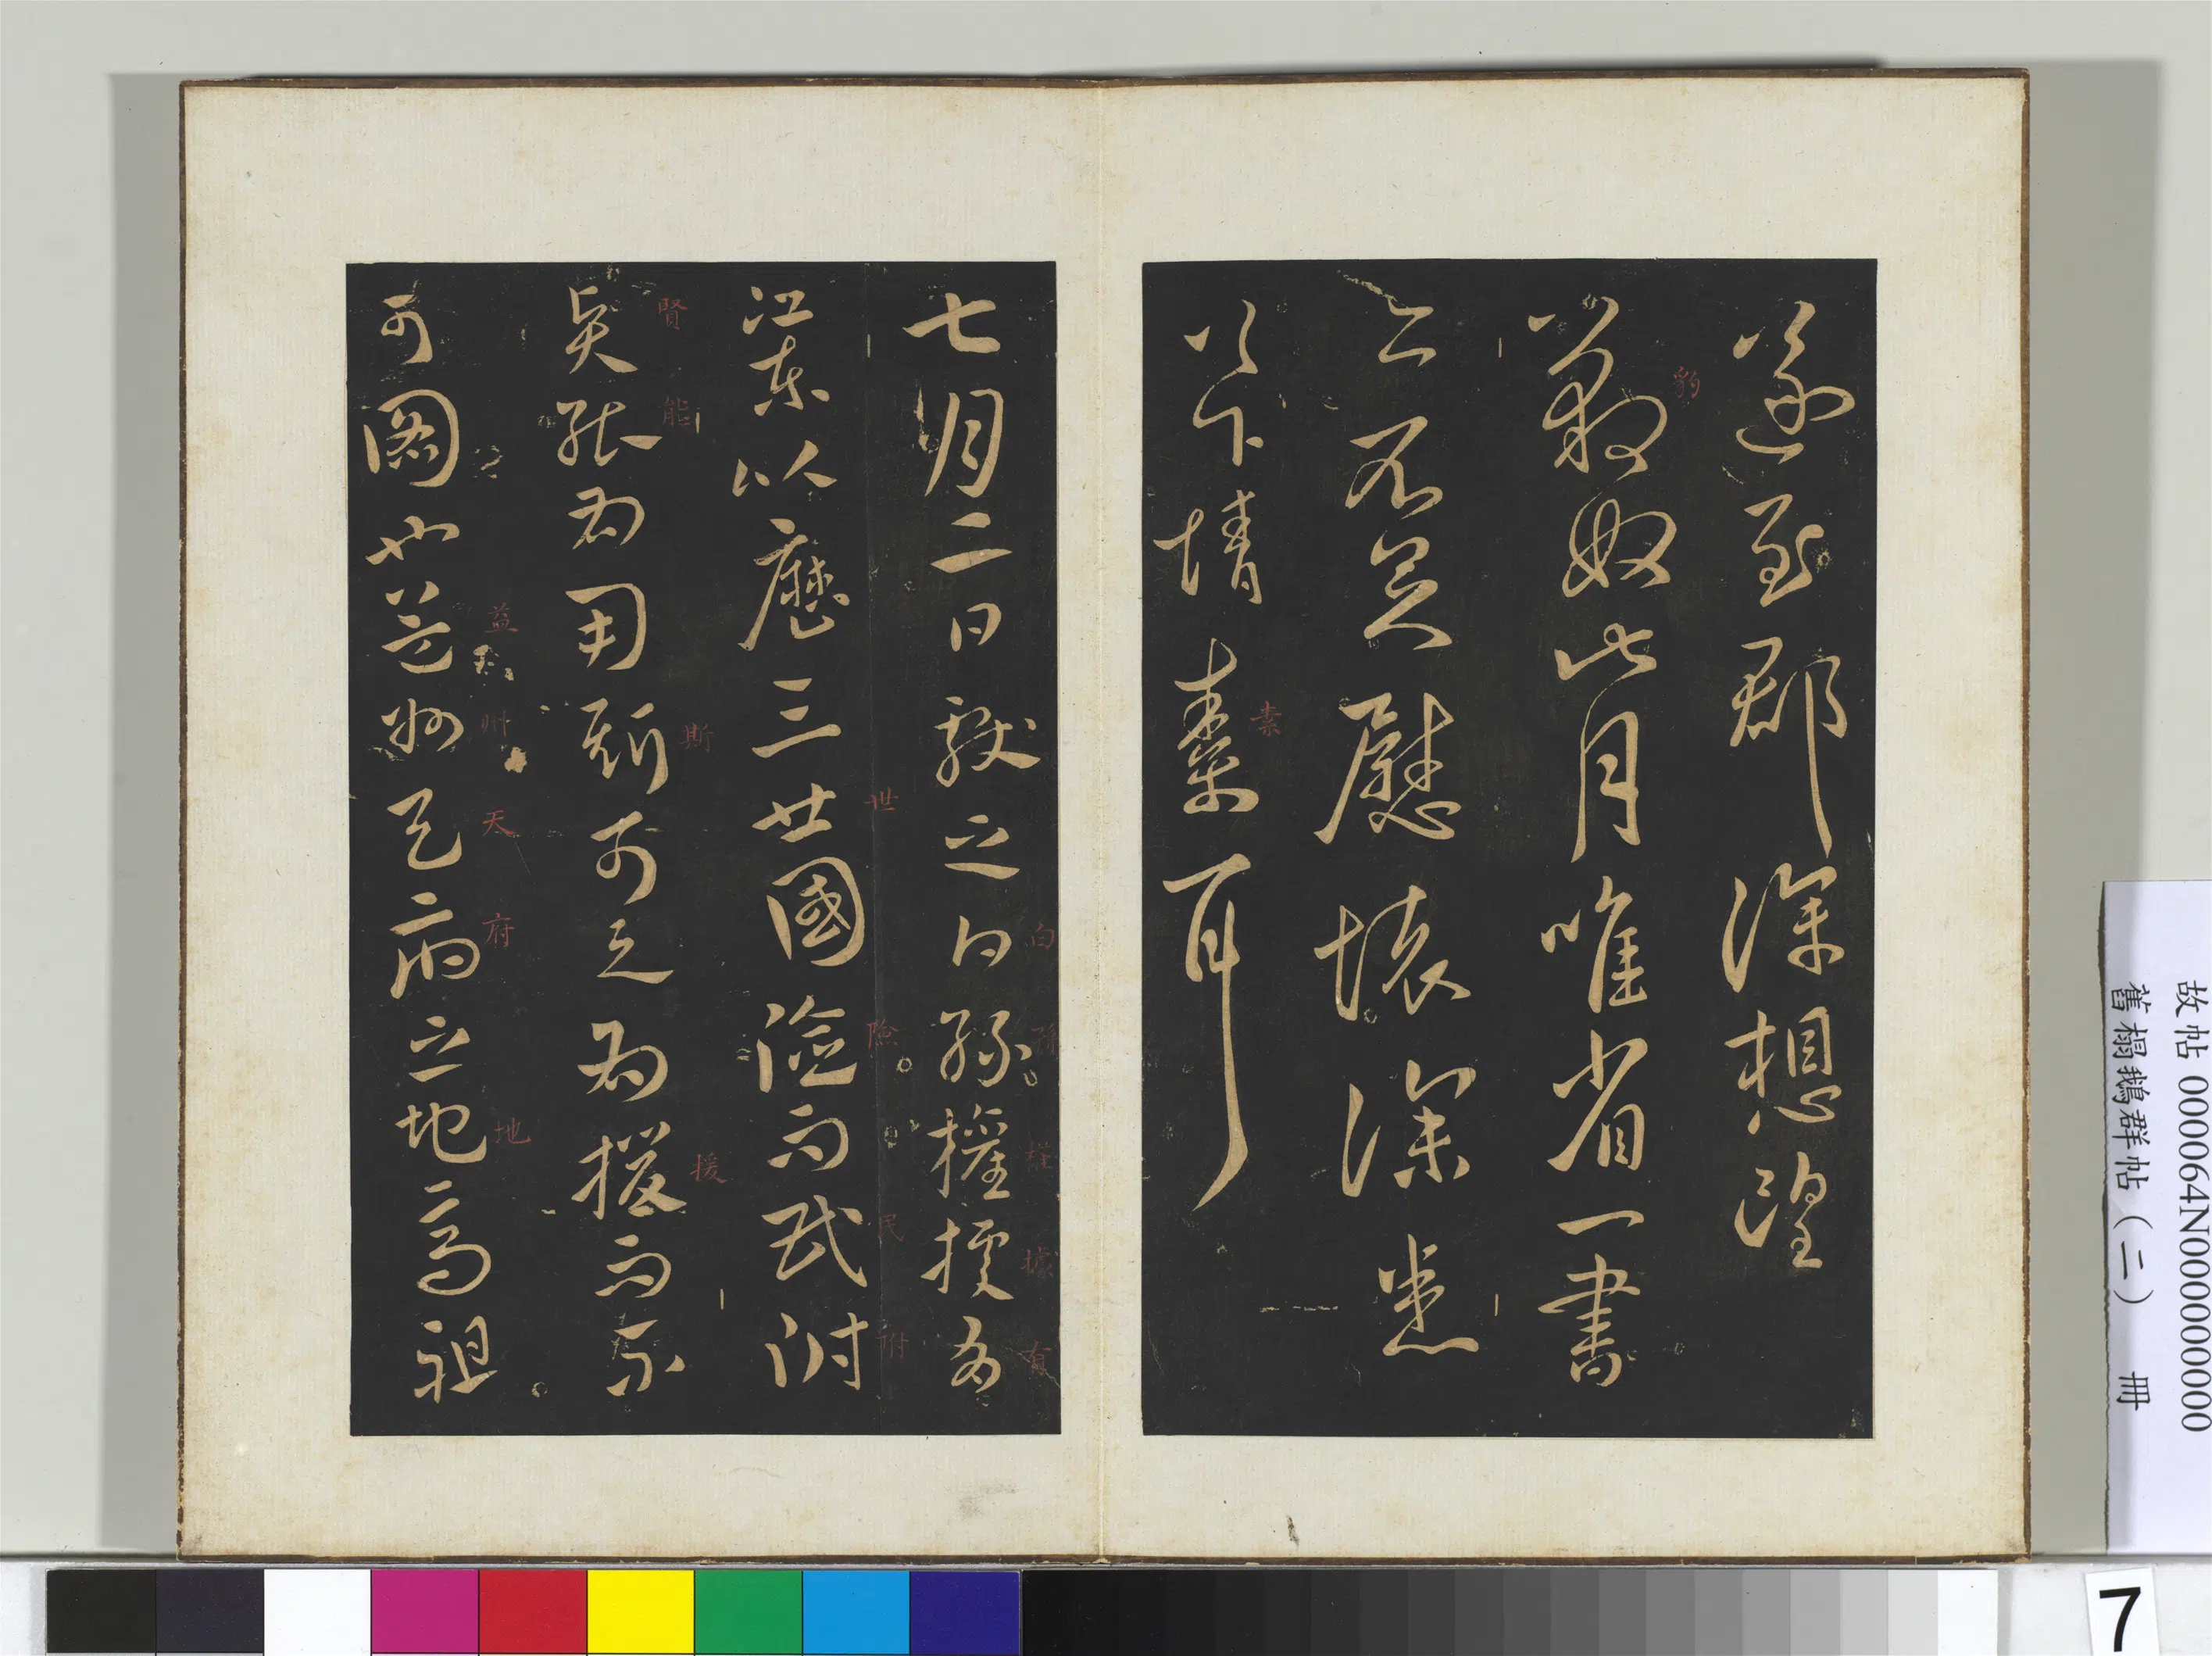 遂至郡深想望
豹
豹奴此月唯省一書
亦不足慰懷深悉
素
以下情素耳
白孫權據有
七月二日獻之白孫權據有
世險民附
江東以歷三世國險而民附
賢能斯援
賢能為用斯可與為援而不
益州天府地
可圖也益州天府之地高祖
故帖 000064N000000000
舊榻鵝群帖（二） 冊
7